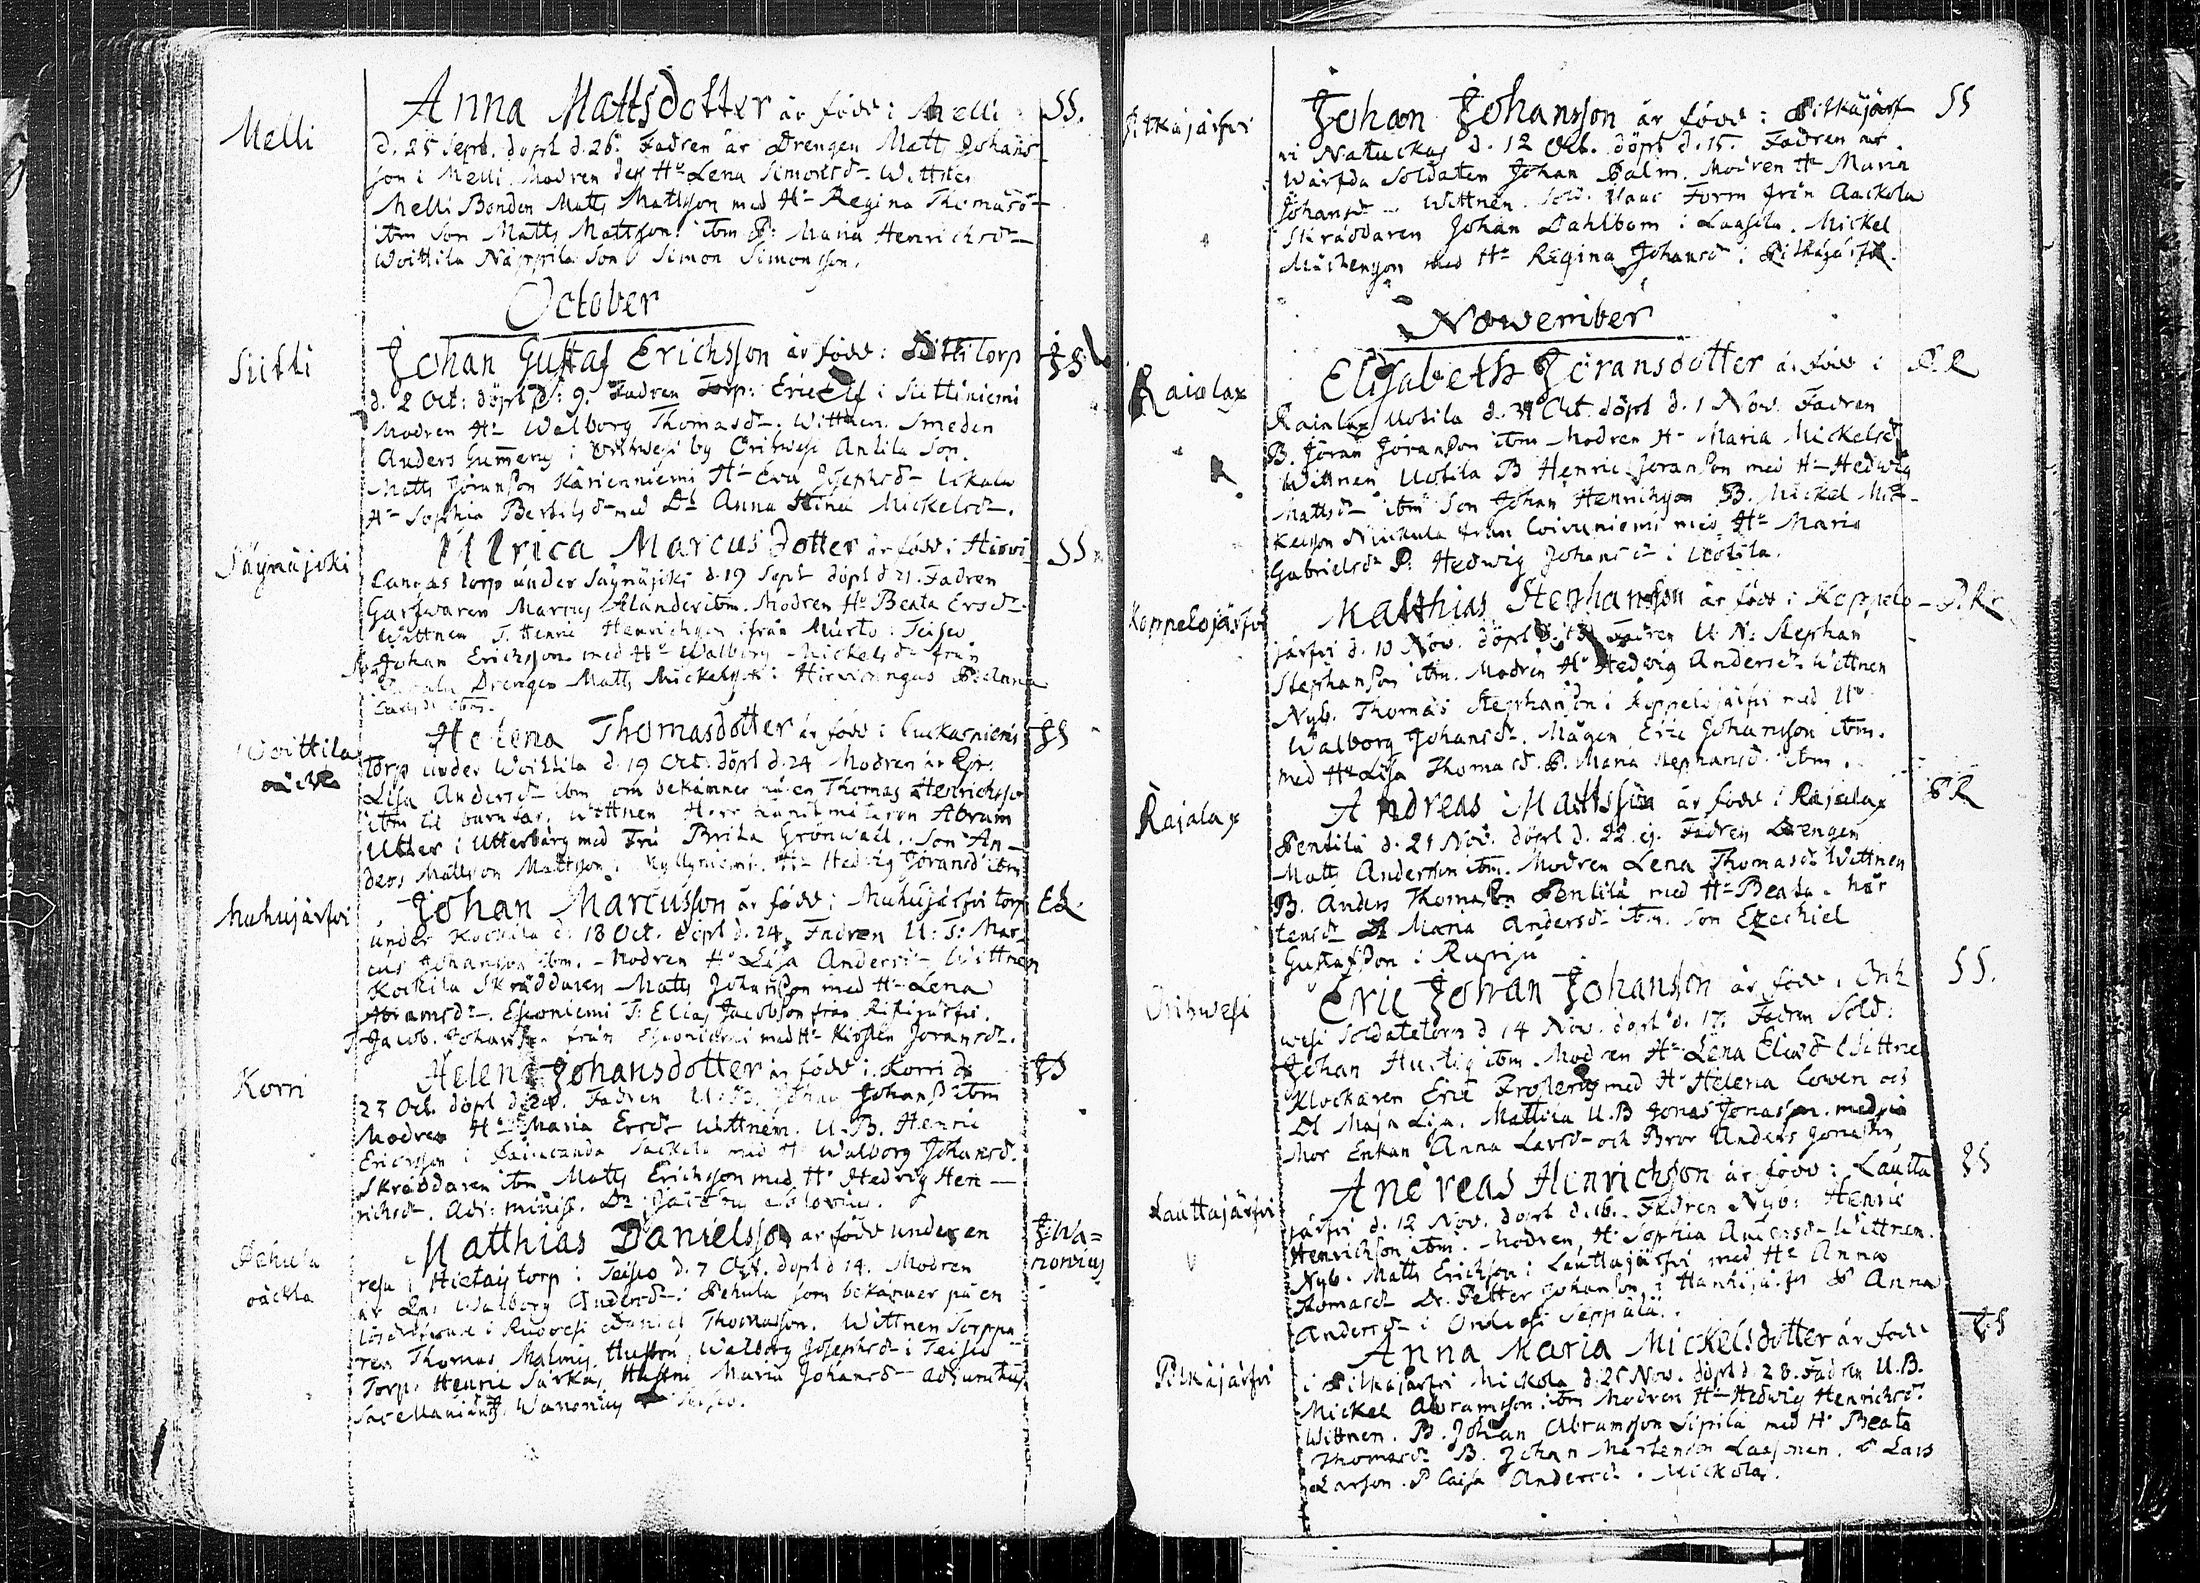 Melli
Anna Mattsdotter är född i Melli SS.
d. 25 Sept. döpt d. 26. Fadren är Drengen Matts Johans-
son i Melli Modren dess Hu Lena Simonsd- Wittnen
Melli Bonden Matts Mattsson med Hu Regina Thomasd-
ibm Son Matts Mattsson. ibm P: Maria Henrichsd-
Woittila Näppilä Son Simon Simonsson.
October
Siitti
Johan Gustaf Erichsson är född i Siitti Torp
d. 2 Oct: döpt d: 9. Fadren Torp: Eric Elf i Siittiniemi
Modren Hu Walborg Thomasd-. Wittnen. Smeden
Anders Gummerus i Orihwesi by Orihwesi Antila Son.
Matts Jöransson Käriennniemi Hu Eva Josephsd- Ukala
Hu Sophia Bertilsd- med Dr Anna Stina Mickelsd-.
Säynäjoki
Ulrica Marcus dotter är född i Hirwi- SS
Cangas torp under Säynäjoki d. 19 Sept döpt d 21. Fadren
Garfwaren Marcus Alander ibm. Modren Hu Beata Ersd-
Wittnen T. Henric Henrichson ifrån Murto i Teisco
Johan Ericksson med Hu Walborg Mickelsd- från
Drengen Matts Mickelss: i Hirwicangas P Helena
Carlsd- ibm.
Woittila
wäckla
Helena Thomasdotter är född i Luckasniemi
torp under Woittila d. 19 Oct. döpt d. 24 Modren är Pig:
Lisa Andersd- ibm om bekänner på en Thomas Henrichsson
ibm til barnfar. Wittnen Herr Abram
Utter i Utterberg med Fru Brita Grönwall. Son An-
ders Mattson Mattsson i Kyllyniemi. Hu Hedvig Jöransd ibm
Muhujärfvi
Johan Marcusson är född i Muhujärfvi torp
under Kockila d. 18 Oct. döpt d. 24. Fadren U: T: Mar-
cus Johansson ibm. Modren Hu Lisa Andersd- Wittnen
Kockila Skräddaren Matts Johansson med Hu Lena
Abramsd-. Esconiemi T: Elias Jacobson från Ripijärfvi.
Jacob. Johansson från Esconiemi med Hu Kirstin Jöransd-.
Korri
Helena Johansdotter är född i Korri d
23 Oct. döpt d 28. Fadren U: B. Johan Johanss ibm
Modren Hu Maria Ersd- Wittnen. U. B. Henric
Ericsson i Sackola med H Walborg Johansd.
Skräddaren ibm Matts Erichsson med Hu Hedvig Hen-
richsd-. Adj: minist. Dn
Pehula
wäckla
Matthias Danielsson är född under en
resa i Hietais torp i Teisco d. 7 Oct. döpt d 14. Modren
är Walborg Andersd- i Pehula som bekänner på en
i Ruovesi Daniel Thomasson. Wittnen Torppa-
ren Thomas Malmis Hustru Walborg Josephsd- i Teisco
Torp: Henric Särkä, Hustru Maria Johansd- adjunctus
Sacellaniæ Wanonius Teisco.
J: Wa=
nonius
Pitkäjärfvi
Johan Johansson är född i Pitkäjärf- SS
vi Natuckas d. 12 Oct. döpt d. 15. Fadren är
Wärfda Soldaten Johan Palm. Modren Hu Maria
Johansd- Wittnen Sold. Isaac Form från Aackola
Skräddaren Johan Dahlbom i Laasila. Mickel
Mårtensson med Hu Regina Johansd- i Pitkäjärfvi.
November
Raialax
Elisabeth Jöransdotter är född i P. R
Raialax Uotila d. 31 Oct. döpt d. 1 Nov. Fadren
B. Jöran Jöransson ibm Modren H- Maria Mickelsd
Wittnen Uotila B Henric Jöransson med H- Hedwig
Mattsd- ibm Son Johan Henrichson B. Mickel Mic-
kelsson Niickula från Coivuniemi med Hu Maria
Gabrielsd- P. Hedwig Johansd- i Uotila.
Koppelojärfvi
Matthias Stephansson är född i Koppelo- P. R
järfvi d. 10 Nov. döpt d. 12 Fadren U: N: Stephan
Stephansson ibm. Modren Hu Hedvig Andersd- Wittnen
Nyb. Thomas Stephansson i Koppelojärfvi med Hu
Walborg Johansd-. Mågen Eric Johansson ibm.
med Hu Lisa Thomasd. P. Maria Stephansd- ibm.
Rajalax
Andreas Mattsson är född i Rajalax P R
Pentilä d. 21 Nov. döpt d. 22. ej. Fadren Drengen
Matts Andersson ibm. Modren Lena Thomasd- Wittnen
B. Anders Thomasson Pentilä med H- Beata Mår-
tensd- Dr Maria Andersd- ibm. Son Ezechiel
Gustafsson i Rupisu
Orihwesi
Eric Johan Johansson är född i Orih- SS.
wesi Soldatetorp d 14 Nov. döpt d. 17. Fadren Sold:
Johan Hurtig ibm. Modren Hu Lena Eliasd- Wittnen
Klockaren Eric Proserius med H- Helena Cowen och
Dr Maja Lisa. Mattila U. B Jonas Jonasson. med sin
Mor Enkan Anna Larsd- och Bror Anders Jonasson
Lauttajärfvi
Andreas Henrichsson är född i Lautta
järfvi d. 12 Nov. döpt d. 16. Fadren Nyb: Henric
Henrichson ibm. Modren, Hu Sophia Andersd- Wittnen.
Nyb. Matts Erichson i Lauttajärfvi med Hu Anna
Thomasd- Dr. Petter Johansson i Hankijärfvi P Anna
Andersd- i Onkiosi Seppälä.
Pitkäjärfvi
Anna Maria Mickelsdotter är född
i Pitkäjärfvi Mickola d. 25 Nov. döpt d 28. Fadren U. B.
Mickel Abramsson ibm Modren H- Hedwig Henrichsd-
Wittnen. B. Johan Abramsson Sipilä med H- Beata
Thomasd- B. Johan Mårtensson Laasonen. P Lars
Larsson. P Caisa Andersd- i Mickola.